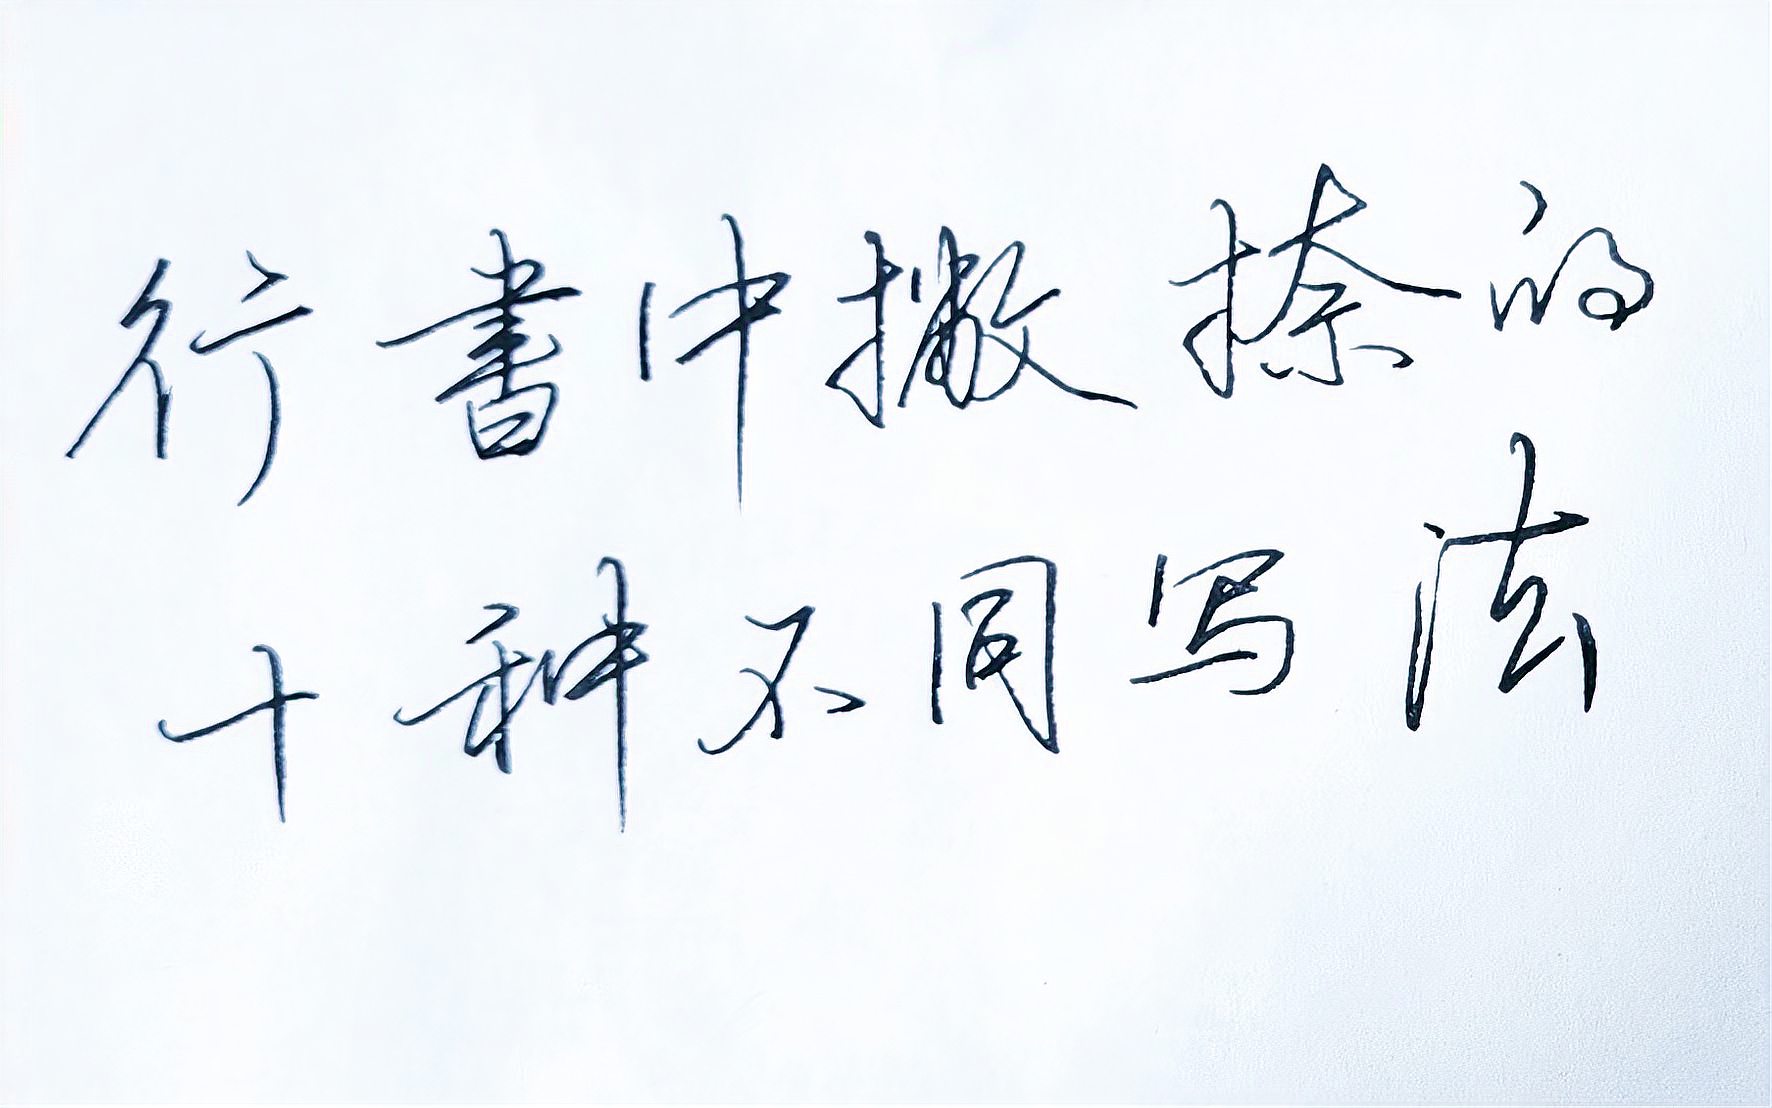 行書中撇捺的
十种不同写法